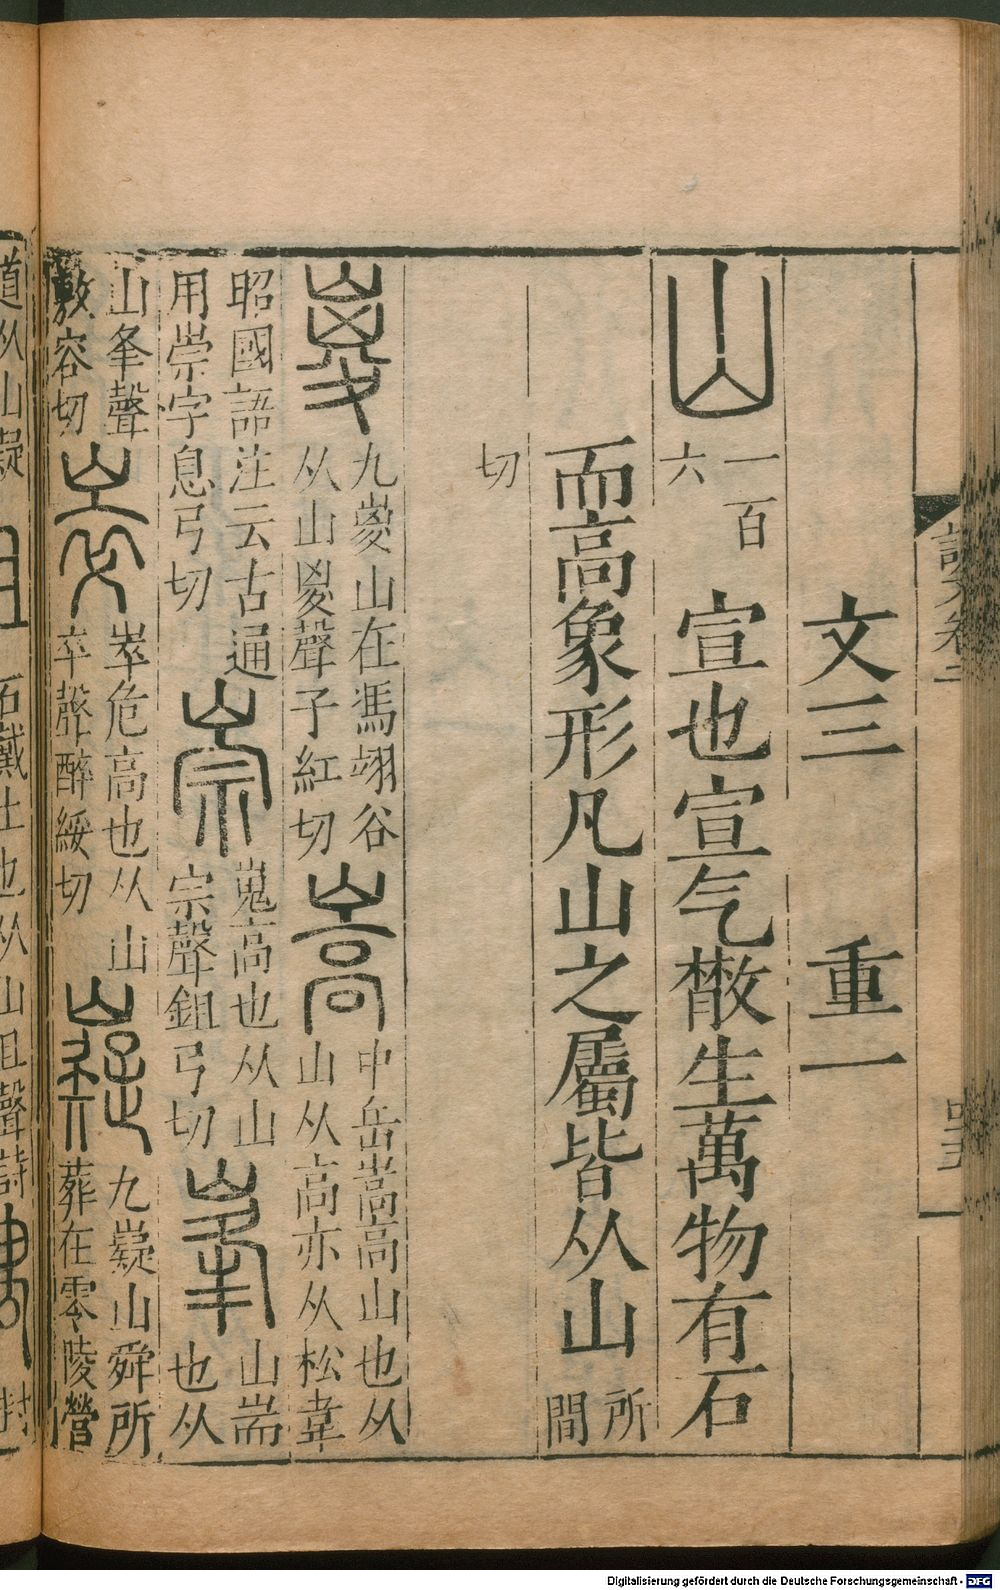 文三　重一
山　一百六　宣也宣气㪚生萬物有石
而高象形凡山之屬皆从山　所間
切
嵏　九嵏山在馮翊谷
从山嵏聲子紅切
嵩　中岳嵩高山也从
山从高亦从松韋
昭國語注云古通
用崇字息弓切
崇　嵬高也从山
宗聲鉏弓切
峯　山耑也从
山夆聲
敷容切
崒　崒危高也从山
卒聲醉綏切
九嶷山舜所
葬在零陵營
道从山
石戴土也从山且聲詩
Digitalisierung gefördert durch die Deutsche Forschungsgemeinschaft - DFG